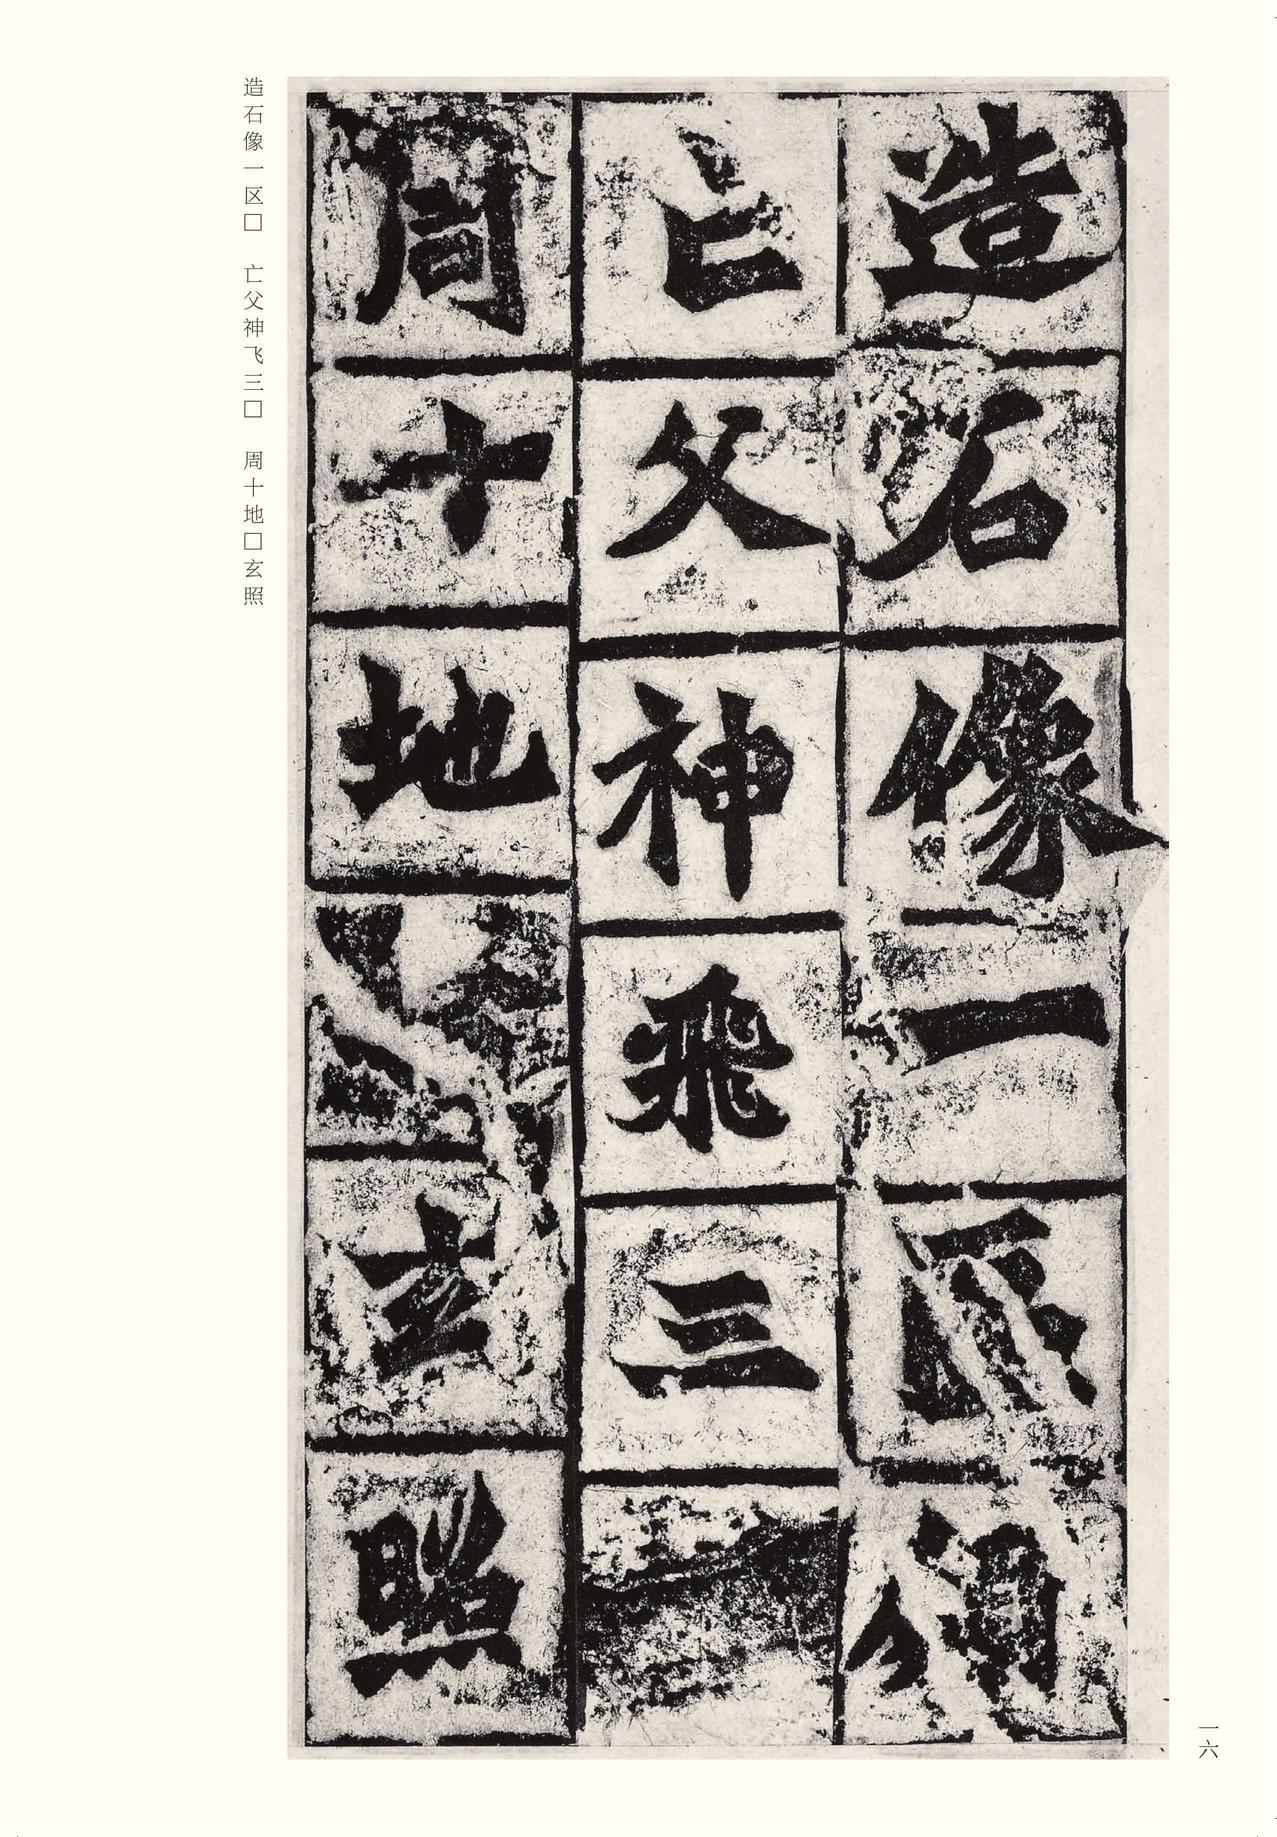 造石像一区
亡父神飛三
周十地
玄照
造石像一区□　亡父神飞三□　周十地□玄照
一六